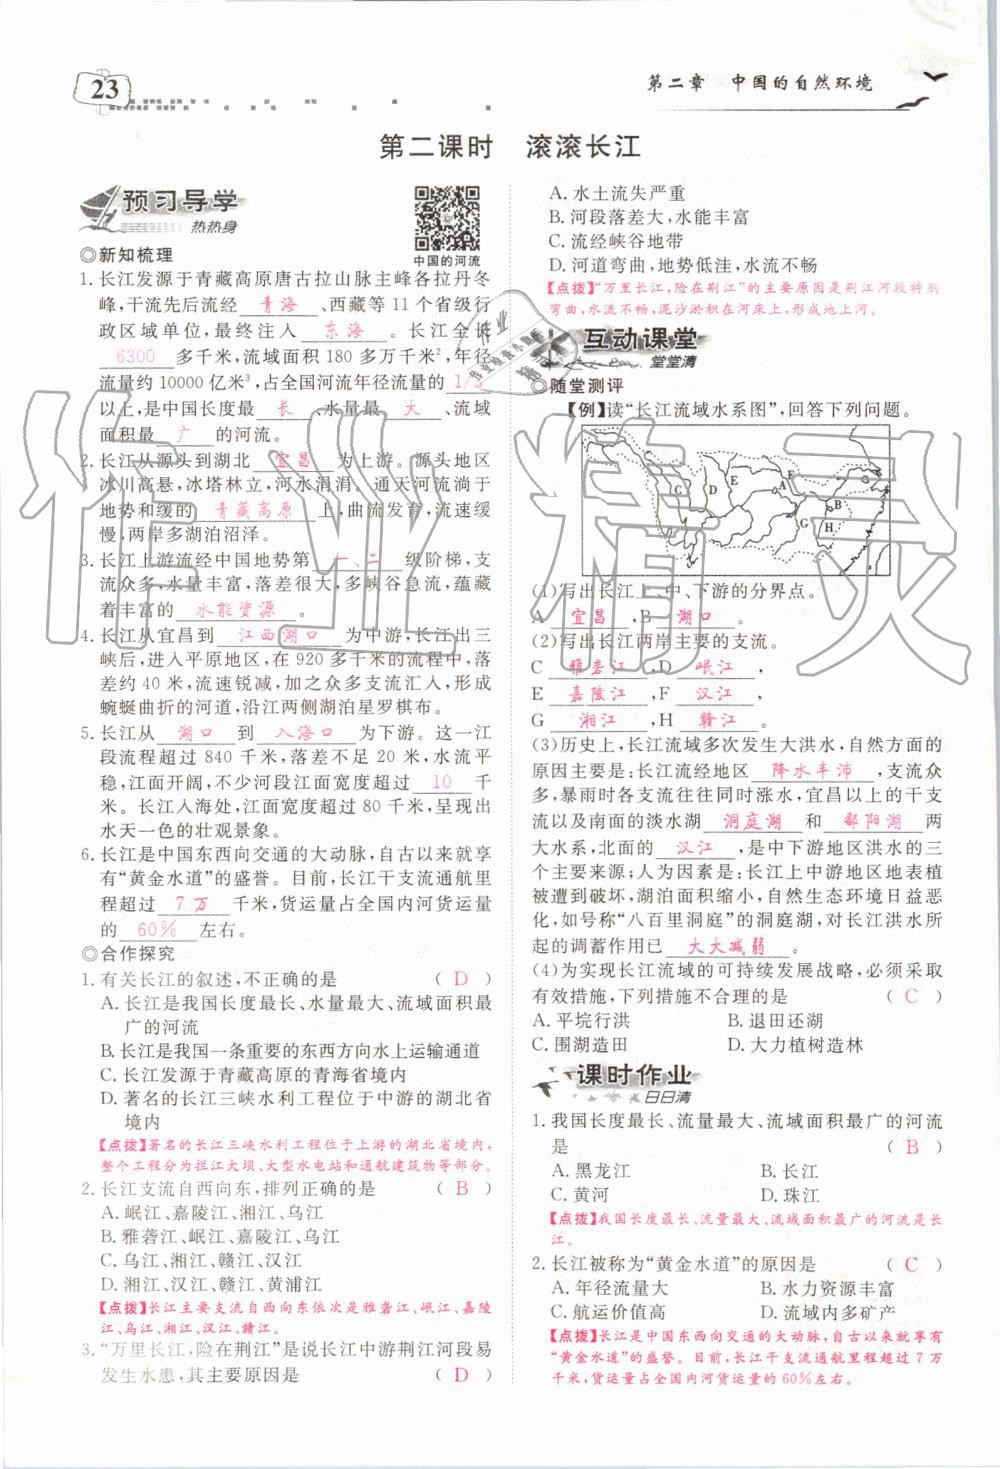 23
第二章 中国的自然环境
第二课时 滚滚长江
预习导学
热热身
中国的河流
◎新知梳理
1.长江发源于青藏高原唐古拉山脉主峰各拉丹冬
峰,干流先后流经 青海 、西藏等11个省级行
政区域单位,最终注入 东海 。长江全长
6300 多千米,流域面积180多万千米²,年径
流量约10000亿米³,占全国河流年径流量的 1/3
以上,是中国长度最 长 、水量最 大 、流域
面积最 广 的河流。
2.长江从源头到湖北 宜昌 为上游。源头地区
冰川高悬,冰塔林立,河水涓涓。通天河流淌于
地势和缓的 青藏高原 上,曲流发育,流速缓
慢,两岸多湖泊沼泽。
3.长江上游流经中国地势第 一、二 级阶梯,支
流众多,水量丰富,落差很大,多峡谷急流,蕴藏
着丰富的 水能资源 。
4.长江从宜昌到 江西湖口 为中游。江水出三
峡后,进入平原地区,在920多千米的流程中,落
差约40米,流速锐减,加之众多支流汇入,形成
蜿蜒曲折的河道,沿江两侧湖泊星罗棋布。
5.长江从 湖口 到 入海口 为下游。这一江
段流程超过840千米,落差不足20米,水流平
稳,江面开阔,不少河段江面宽度超过 10 千
米。长江入海处,江面宽度超过80千米,呈现出
水天一色的壮观景象。
6.长江是中国东西向交通的大动脉,自古以来就享
有“黄金水道”的盛誉。目前,长江干支流通航里
程超过 7万 千米,货运量占全国内河货运量
的 60% 左右。
◎合作探究
1.有关长江的叙述,不正确的是 ( D )
A.长江是我国长度最长、水量最大、流域面积最
广的河流
B.长江是我国一条重要的东西方向水上运输通道
C.长江发源于青藏高原的青海省境内
D.著名的长江三峡水利工程位于中游的湖北省
境内
【点拨】著名的长江三峡水利工程位于上游的湖北省境内,
整个工程分为拦江大坝、大型水电站和通航建筑物等部分。
2.长江支流自西向东,排列正确的是 ( B )
A.岷江、嘉陵江、湘江、乌江
B.雅砻江、岷江、汉江、赣江
C.乌江、湘江、赣江、汉江
D.湘江、汉江、赣江、黄浦江
【点拨】长江主要支流自西向东依次是雅砻江、岷江、嘉陵
江、乌江、湘江、汉江、赣江。
3.“万里长江,险在荆江”是说长江中游荆江河段易
发生水患,其主要原因是 ( D )
A.水土流失严重
B.河段落差大,水能丰富
C.流经峡谷地带
D.河道弯曲,地势低洼,水流不畅
【点拨】“万里长江,险在荆江”的主要原因是荆江河段特别
弯曲,水流不畅,泥沙淤积在河床上,形成地上河。
互动课堂
堂堂清
◎随堂测评
【例】读“长江流域水系图”,回答下列问题。
C D E A F B G H
(1)写出长江上、中、下游的分界点。
A 宜昌 ,B 湖口 。
(2)写出长江两岸主要的支流。
C 雅砻江 ,D 岷江 ,
E 嘉陵江 ,F 汉江 ,
G 湘江 ,H 赣江 。
(3)历史上,长江流域多次发生大洪水,自然方面的
原因主要是:长江流经地区 降水丰沛 ,支流众
多,暴雨时各支流往往同时涨水,宜昌以上的干支
流以及南面的淡水湖 洞庭湖 和 鄱阳湖 两
大水系,北面的 汉江 ,是中下游地区洪水的三
个主要来源;人类原因主要是:长江上中游地区地表植
被遭到破坏,湖泊面积缩小,自然生态环境日益恶
化,如号称“八百里洞庭”的洞庭湖,对长江洪水所
起的调蓄作用已 大大减弱 。
(4)为实现长江流域的可持续发展战略,必须采取
有效措施,下列措施不合理的是 ( C )
A.平垸行洪 B.退田还湖
C.围湖造田 D.大力植树造林
课时作业
日日清
1.我国长度最长、流量最大、流域面积最广的河流
是 ( B )
A.黑龙江 B.长江
C.黄河 D.珠江
【点拨】我国长度最长、流量最大、流域面积最广的河流是长
江。
2.长江被称为“黄金水道”的原因是 ( C )
A.年径流量大 B.水力资源丰富
C.航运价值高 D.流域内多矿产
【点拨】长江是中国东西向交通的大动脉,自古以来就享有
“黄金水道”的盛誉。目前,长江干支流通航里程超过7万
千米,货运量占全国内河货运量的60%左右。
作业精灵